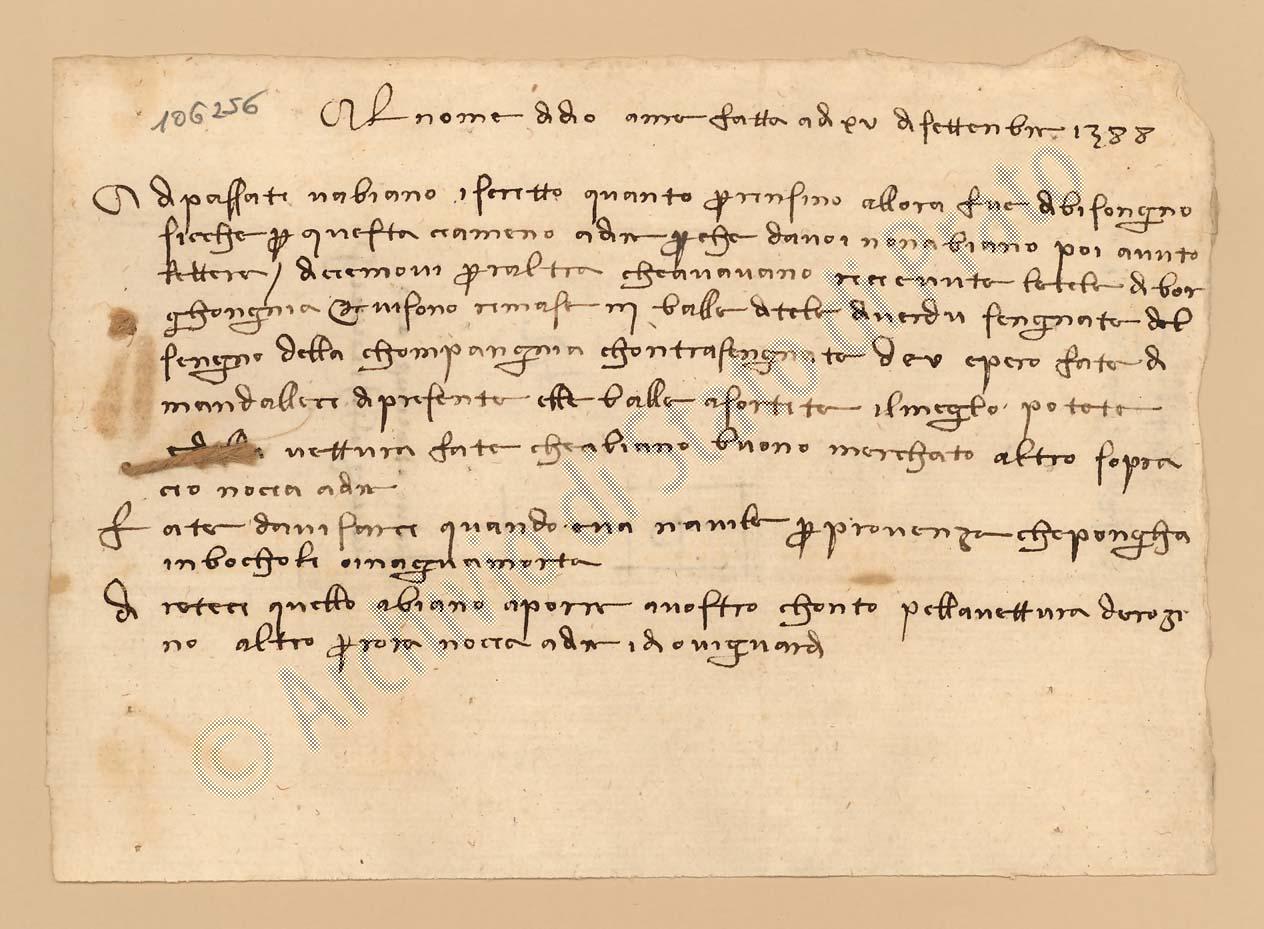 106256
Al nome di dio amen fatta a dì xv di settenbre 1388
A dì passati v'abiano iscritto quanto per ensino allora fue di bisongno
sicche per questa ci ameno a dire perché da voi non abiano poi avuto
lettere / dicemovi per l'altra che avavano ricevute le tele di bor
ghongnia e vi sono rimase iij balle di tele di verdu sengnate del
sengno della chompangnia chontrasengnate d e v e però fate di
mandalleci di presente esse balle asortite il meglo potete
vettura fate che abiano buono merchato altro sopra
ciò nocia a dire
Fate d'avisarci quando navile per provenza che pongha
in bocholi o in aguamorta
Direteci quello abiano a porre a vostro chonto pella vettura de ronzi
no altro per ora nocia a dire idio vi guardi
© Archivio di Stato di Prato